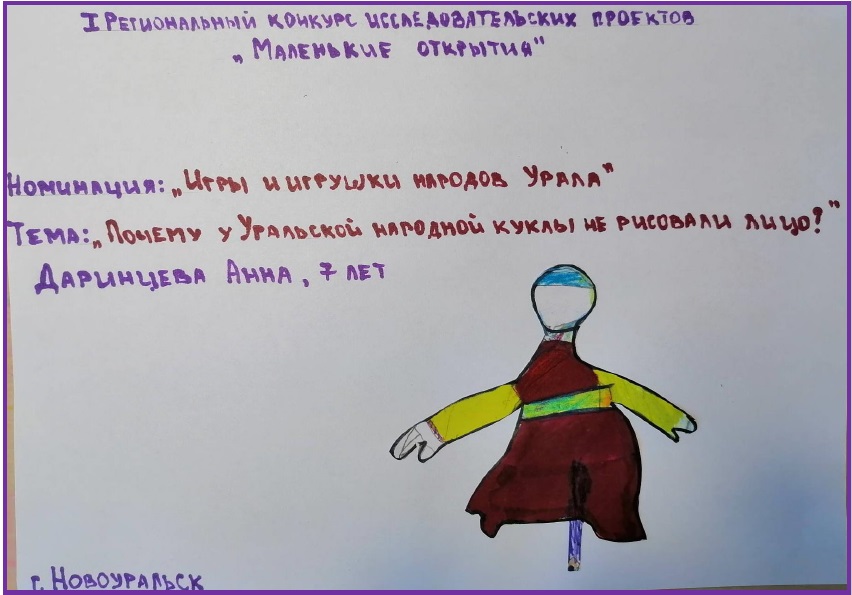 I Региональный конкурс исследовательских проектов
„Маленькие открытия"
Номинация: „Игры и игрушки народов Урала"
Тема: „Почему у Уральской народной куклы не рисовали лицо?"
Даринцева Анна, 7 лет
г. Новоуральск